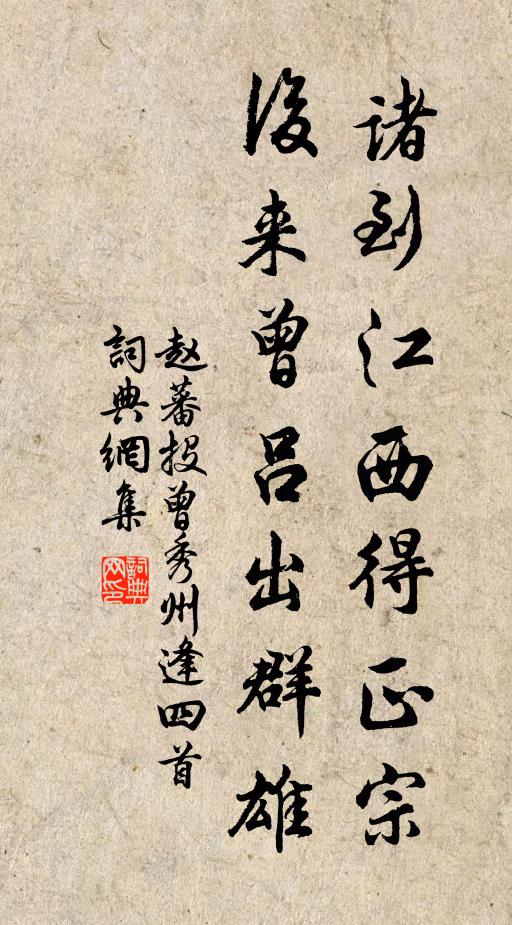 诸到江西得正宗
後来曾吕出群雄
赵蕃投曾秀州逢四首
詞典網集
詞典网印